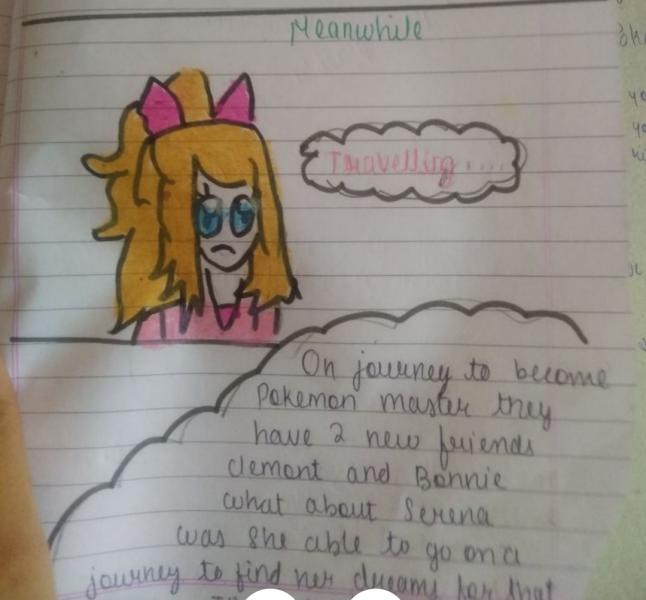 Meanwhile
Travelling .....
On journey to become
Pokemon master they
have 2 new friends
clemont and Bonnie
what about Serena
was she able to go on a
journey to find her dreams for that